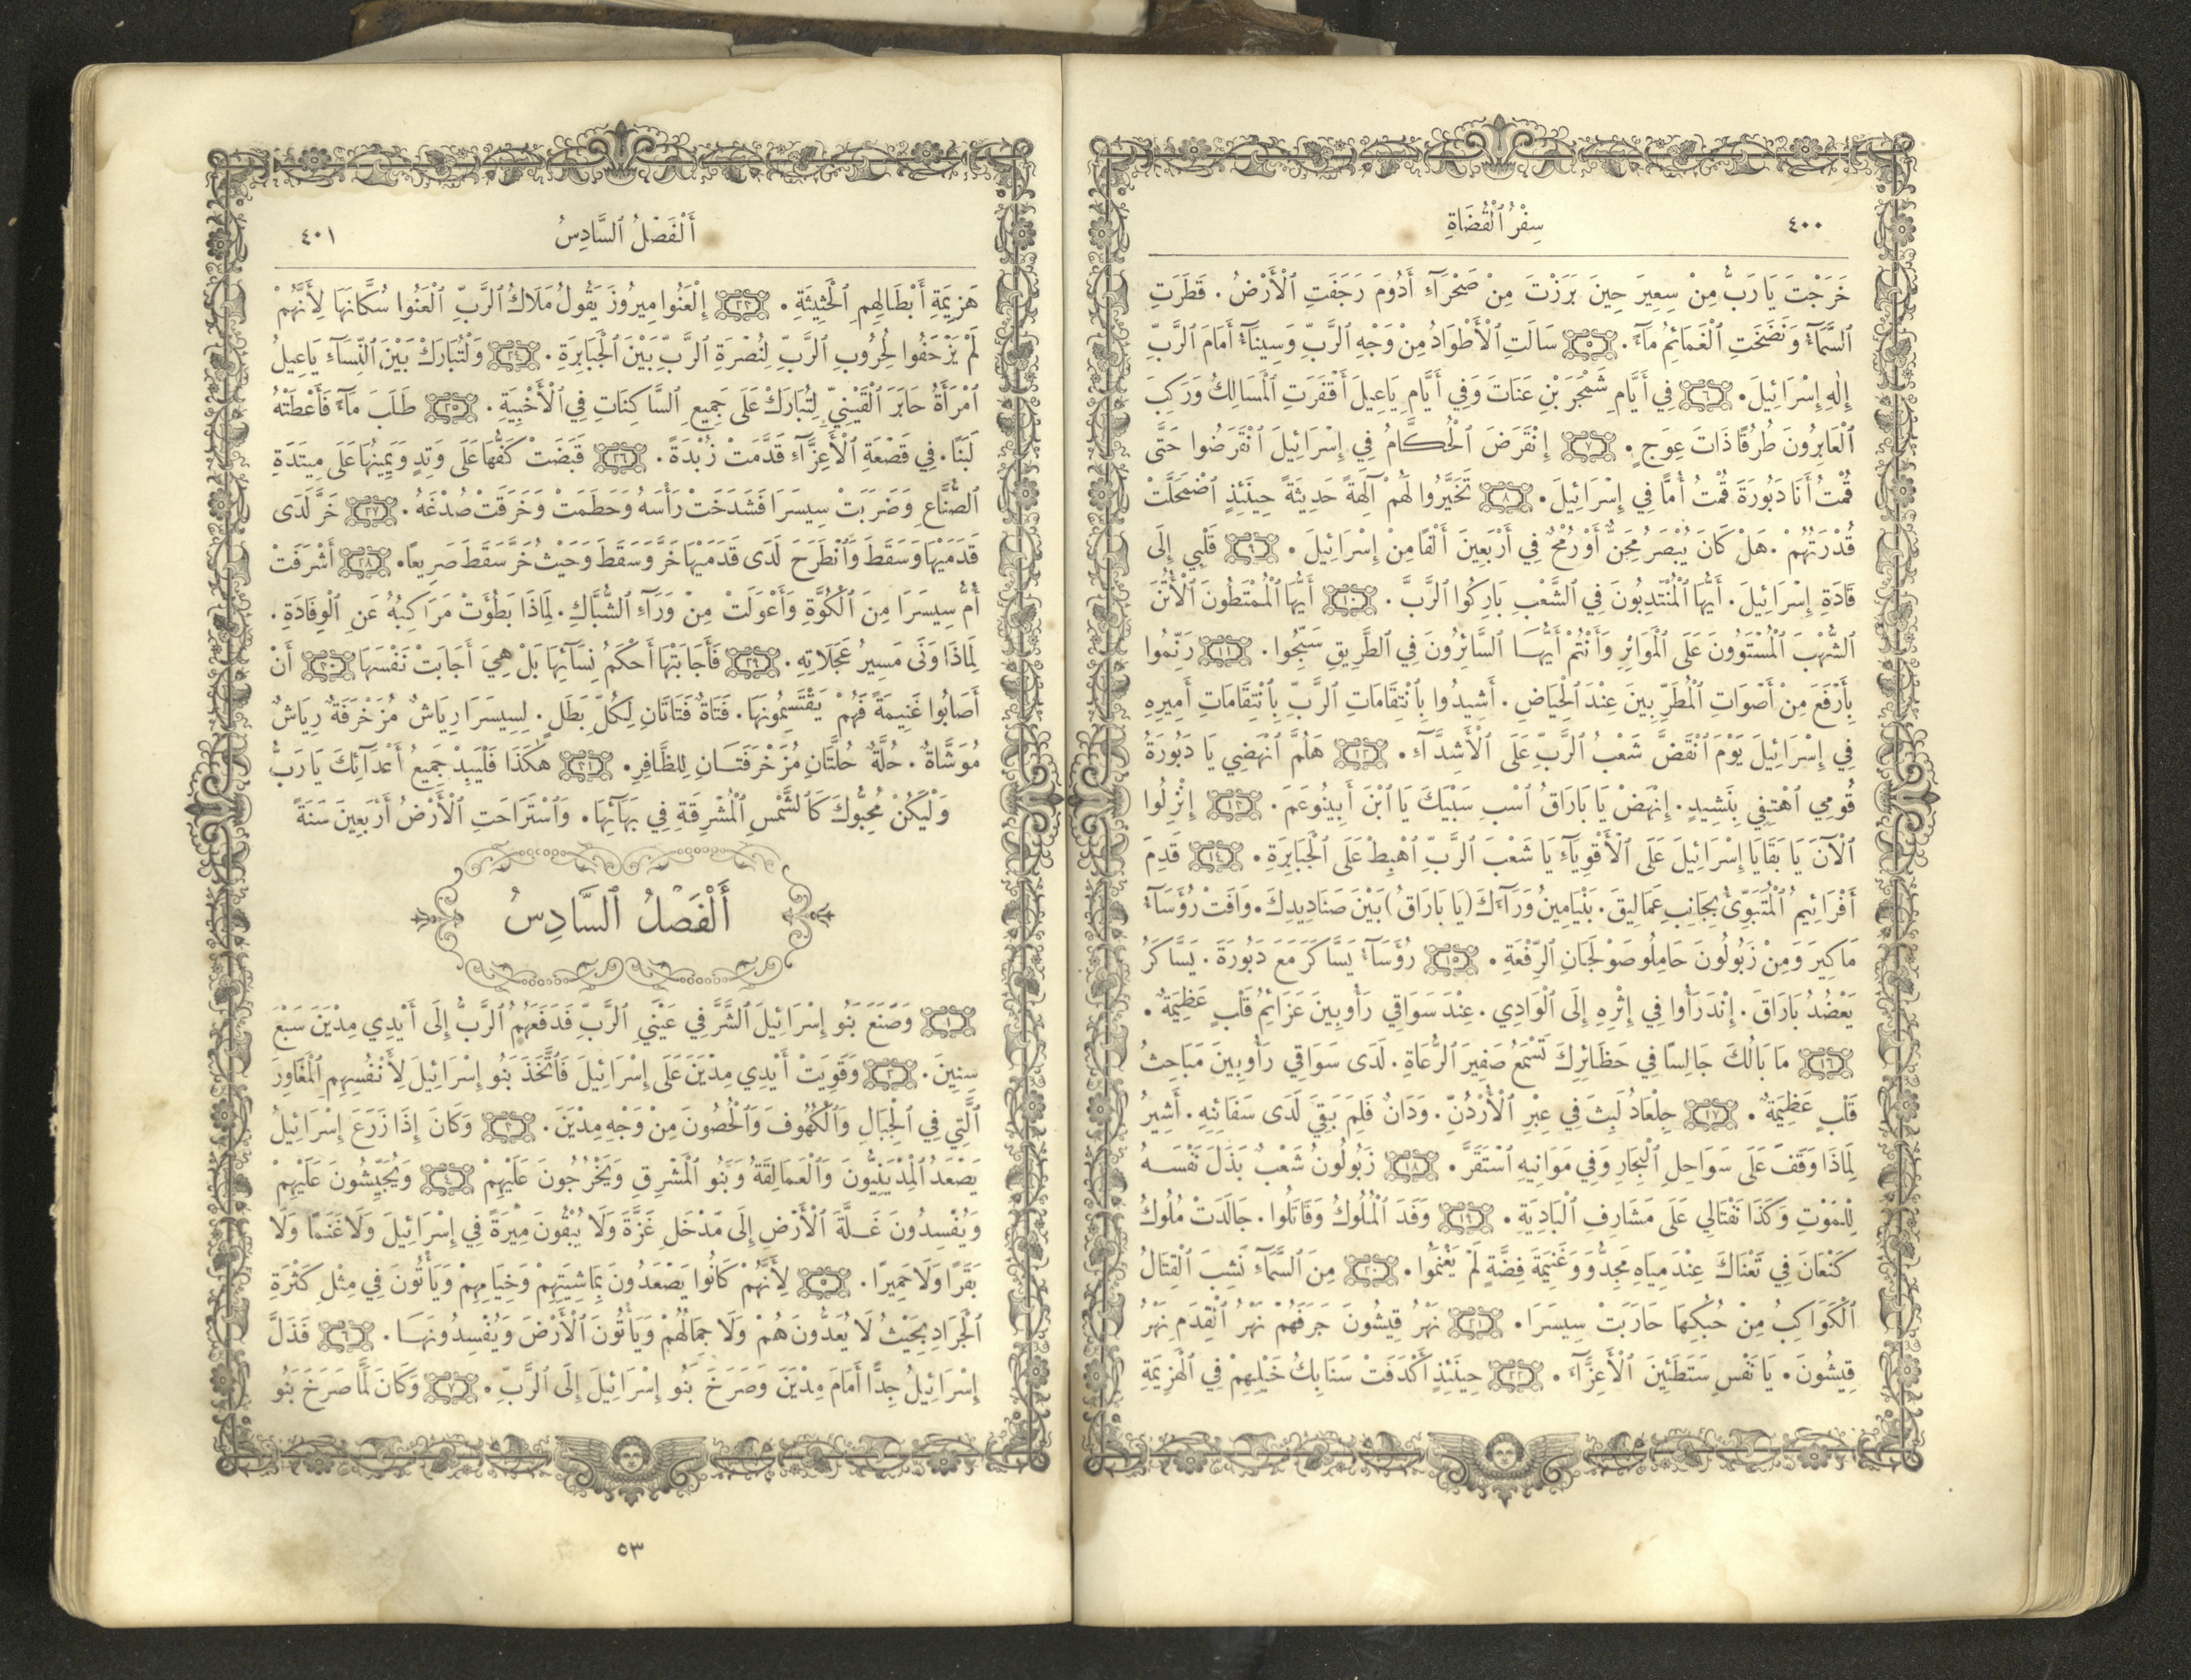 ٤٠٠ سِفْرُ ٱلْقُضَاةِ
خَرَجْتَ يَا رَبُّ مِنْ سِعِيرَ حِينَ بَرَزْتَ مِنْ صَحْرَآءِ أَدُومَ رَجَفَتِ ٱلْأَرْضُ . قَطَرَتِ
ٱلسَّمَآءُ وَنَضَحَتِ ٱلْغَمَائِمُ مَآءً . ٥ سَالَتِ ٱلْأَطْوَادُ مِنْ وَجْهِ ٱلرَّبِّ وَسِينَآءُ أَمَامَ ٱلرَّبِّ
إِلٰهِ إِسْرَائِيلَ . ٦ فِي أَيَّامِ شَمْجَرَ بْنِ عَنَاتَ وَفِي أَيَّامِ يَاعِيلَ أَقْفَرَتِ ٱلْمَسَالِكُ وَرَكِبَ
ٱلْعَابِرُونَ طُرُقًا ذَاتَ عِوَجٍ . ٧ إِنْقَرَضَ ٱلْحُكَّامُ فِي إِسْرَائِيلَ ٱنْقَرَضُوا حَتَّى
قُمْتُ أَنَا دَبُورَةَ قُمْتُ أُمًّا فِي إِسْرَائِيلَ . ٨ تَخَيَّرُوا لَهُمْ آلِهَةً حَدِيثَةً حِينَئِذٍ ٱضْمَحَلَّتْ
قُدْرَتُهُمْ . هَلْ كَانَ يُبْصَرُ مِجَنٌّ أَوْ رُمْحٌ فِي أَرْبَعِينَ أَلْفًا مِنْ إِسْرَائِيلَ . ٩ قَلْبِي إِلَى
قَادَةِ إِسْرَائِيلَ . أَيُّهَا ٱلْمُنْتَدِبُونَ فِي ٱلشَّعْبِ بَارِكُوا ٱلرَّبَّ . ١٠ أَيُّهَا ٱلْمُمْتَطُونَ ٱلْأُتُنَ
ٱلشُّهْبَ ٱلْمُسْتَوُونَ عَلَى ٱلْمَوَاثِرِ وَأَنْتُمْ أَيُّهَا ٱلسَّائِرُونَ فِي ٱلطَّرِيقِ سَبِّحُوا . ١١ رَنِّمُوا
بِأَرْفَعَ مِنْ أَصْوَاتِ ٱلْمُطَرِّبِينَ عِنْدَ ٱلْحِيَاضِ . أَشِيدُوا بِٱنْتِقَامَاتِ ٱلرَّبِّ بِٱنْتِقَامَاتِ أَمِيرِهِ
فِي إِسْرَائِيلَ يَوْمَ ٱنْقَضَّ شَعْبُ ٱلرَّبِّ عَلَى ٱلْأَشِدَّآءِ . ١٢ هَلُمَّ ٱنْهَضِي يَا دَبُورَةُ
قُومِي ٱهْتِفِي بِنَشِيدٍ . إِنْهَضْ يَا بَارَاقُ ٱسْبِ سَبْيَكَ يَا ٱبْنَ أَبِينُوعَمَ . ١٣ إِنْزِلُوا
ٱلْآنَ يَا بَقَايَا إِسْرَائِيلَ عَلَى ٱلْأَقْوِيَآءِ يَا شَعْبَ ٱلرَّبِّ ٱهْبِطْ عَلَى ٱلْجَبَابِرَةِ . ١٤ قَدِمَ
أَفْرَائِيمُ ٱلْمُتَبَوِّئُ بِجَانِبِ عَمَالِيقَ . بَنْيَامِينُ وَرَآءَكَ (يَا بَارَاقُ) بَيْنَ صَنَادِيدِكَ . وَافَتْ رُؤَسَآءُ
مَاكِيرَ وَمِنْ زَبُولُونَ حَامِلُو صَوْلَجَانِ ٱلرِّفْعَةِ . ١٥ رُؤَسَآءُ يَسَّاكَرَ مَعَ دَبُورَةَ . يَسَّاكَرُ
يَعْضُدُ بَارَاقَ . إِنْدَرَأُوا فِي إِثْرِهِ إِلَى ٱلْوَادِي . عِنْدَ سَوَاقِي رَأُوبِينَ عَزَائِمُ قَلْبٍ عَظِيمَةٌ .
١٦ مَا بَالُكَ جَالِسًا فِي حَظَائِرِكَ تَسْمَعُ صَفِيرَ ٱلرُّعَاةِ . لَدَى سَوَاقِي رَأُوبِينَ مَبَاحِثُ
قَلْبٍ عَظِيمَةٌ . ١٧ جِلْعَادُ لَبِثَ فِي عِبْرِ ٱلْأُرْدُنِّ . وَدَانٌ فَلِمَ بَقِيَ لَدَى سَفَائِنِهِ . أَشِيرُ
لِمَاذَا وَقَفَ عَلَى سَوَاحِلِ ٱلْبِحَارِ وَفِي مَوَانِيهِ ٱسْتَقَرَّ . ١٨ زَبُولُونُ شَعْبٌ بَذَلَ نَفْسَهُ
لِلْمَوْتِ وَكَذَا نَفْتَالِي عَلَى مَشَارِفِ ٱلْبَادِيَةِ . ١٩ وَفَدَ ٱلْمُلُوكُ وَقَاتَلُوا . جَالَدَتْ مُلُوكُ
كَنْعَانَ فِي تَعْنَاكَ عِنْدَ مِيَاهِ مَجِدُّو وَغَنِيمَةَ فِضَّةٍ لَمْ يَغْنَمُوا . ٢٠ مِنَ ٱلسَّمَآءِ نَشِبَ ٱلْقِتَالُ
ٱلْكَوَاكِبُ مِنْ حُبُكِهَا حَارَبَتْ سِيسَرَا . ٢١ نَهْرُ قِيشُونَ جَرَفَهُمْ نَهْرُ ٱلْقِدَمِ نَهْرُ
قِيشُونَ . يَا نَفْسِ سَتَطَئِينَ ٱلْأَعِزَّآءَ . ٢٢ حِينَئِذٍ أَكْدَفَتْ سَنَابِكُ خَيْلِهِمْ فِي ٱلْهَزِيمَةِ
أَلْفَصْلُ ٱلسَّادِسُ ٤٠١
هَزِيمَةِ أَبْطَالِهِمِ ٱلْحَثِيثَةِ . ٢٣ إِلْعَنُوا مِيرُوزَ يَقُولُ مَلَاكُ ٱلرَّبِّ ٱلْعَنُوا سُكَّانَهَا لِأَنَّهُمْ
لَمْ يَزْحَفُوا لِحُرُوبِ ٱلرَّبِّ لِنُصْرَةِ ٱلرَّبِّ بَيْنَ ٱلْجَبَابِرَةِ . ٢٤ وَلْتُبَارَكْ بَيْنَ ٱلنِّسَآءِ يَاعِيلُ
ٱمْرَأَةُ حَابَرَ ٱلْقَيْنِيِّ لِتُبَارَكْ عَلَى جَمِيعِ ٱلسَّاكِنَاتِ فِي ٱلْأَخْبِيَةِ . ٢٥ طَلَبَ مَآءً فَأَعْطَتْهُ
لَبَنًا . فِي قَصْعَةِ ٱلْأَعِزَّآءِ قَدَّمَتْ زُبْدَةً . ٢٦ قَبَضَتْ كَفُّهَا عَلَى وَتِدٍ وَيَمِينُهَا عَلَى مِيتَدَةِ
ٱلصُّنَّاعِ وَضَرَبَتْ سِيسَرَا فَشَدَخَتْ رَأْسَهُ وَحَطَمَتْ وَخَرَقَتْ صُدْغَهُ . ٢٧ خَرَّ لَدَى
قَدَمَيْهَا وَسَقَطَ وَٱنْطَرَحَ لَدَى قَدَمَيْهَا خَرَّ وَسَقَطَ وَحَيْثُ خَرَّ سَقَطَ صَرِيعًا . ٢٨ أَشْرَفَتْ
أُمُّ سِيسَرَا مِنَ ٱلْكُوَّةِ وَأَعْوَلَتْ مِنْ وَرَآءِ ٱلشُّبَّاكِ . لِمَاذَا بَطُؤَتْ مَرَاكِبُهُ عَنِ ٱلْوِفَادَةِ .
لِمَاذَا وَنَى مَسِيرُ عَجَلَاتِهِ . ٢٩ فَأَجَابَتْهَا أَحْكَمُ نِسَآئِهَا بَلْ هِيَ أَجَابَتْ نَفْسَهَا ٣٠ أَنْ
أَصَابُوا غَنِيمَةً فَهُمْ يَقْتَسِمُونَهَا . فَتَاةٌ فَتَاتَانِ لِكُلِّ بَطَلٍ . لِسِيسَرَا رِيَاشٌ مُزَخْرَفَةٌ رِيَاشٌ
مُوَشَّاةٌ . حُلَّةٌ حُلَّتَانِ مُزَخْرَفَتَانِ لِلظَّافِرِ . ٣١ هٰكَذَا فَلْيَبِدْ جَمِيعُ أَعْدَآئِكَ يَا رَبُّ
وَلْيَكُنْ مُحِبُّوكَ كَٱلشَّمْسِ ٱلْمُشْرِقَةِ فِي بَهَآئِهَا . وَٱسْتَرَاحَتِ ٱلْأَرْضُ أَرْبَعِينَ سَنَةً
أَلْفَصْلُ ٱلسَّادِسُ
١ وَصَنَعَ بَنُو إِسْرَائِيلَ ٱلشَّرَّ فِي عَيْنَيِ ٱلرَّبِّ فَدَفَعَهُمُ ٱلرَّبُّ إِلَى أَيْدِي مِدْيَنَ سَبْعَ
سِنِينَ . ٢ وَقَوِيَتْ أَيْدِي مِدْيَنَ عَلَى إِسْرَائِيلَ فَٱتَّخَذَ بَنُو إِسْرَائِيلَ لِأَنْفُسِهِمِ ٱلْمَغَاوِرَ
ٱلَّتِي فِي ٱلْجِبَالِ وَٱلْكُهُوفَ وَٱلْحُصُونَ مِنْ وَجْهِ مِدْيَنَ . ٣ وَكَانَ إِذَا زَرَعَ إِسْرَائِيلُ
يَصْعَدُ ٱلْمِدْيَنِيُّونَ وَٱلْعَمَالِقَةُ وَبَنُو ٱلْمَشْرِقِ وَيَخْرُجُونَ عَلَيْهِمْ ٤ وَيُجَيِّشُونَ عَلَيْهِمْ
وَيُفْسِدُونَ غَلَّةَ ٱلْأَرْضِ إِلَى مَدْخَلِ غَزَّةَ وَلَا يُبْقُونَ مِيْرَةً فِي إِسْرَائِيلَ وَلَا غَنَمًا وَلَا
بَقَرًا وَلَا حَمِيرًا . ٥ لِأَنَّهُمْ كَانُوا يَصْعَدُونَ بِمَاشِيَتِهِمْ وَخِيَامِهِمْ وَيَأْتُونَ فِي مِثْلِ كَثْرَةِ
ٱلْجَرَادِ بِحَيْثُ لَا يُعَدُّونَ هُمْ وَلَا جِمَالُهُمْ وَيَأْتُونَ ٱلْأَرْضَ وَيُفْسِدُونَهَا . ٦ فَذَلَّ
إِسْرَائِيلُ جِدًّا أَمَامَ مِدْيَنَ وَصَرَخَ بَنُو إِسْرَائِيلَ إِلَى ٱلرَّبِّ . ٧ وَكَانَ لَمَّا صَرَخَ بَنُو
٥٣